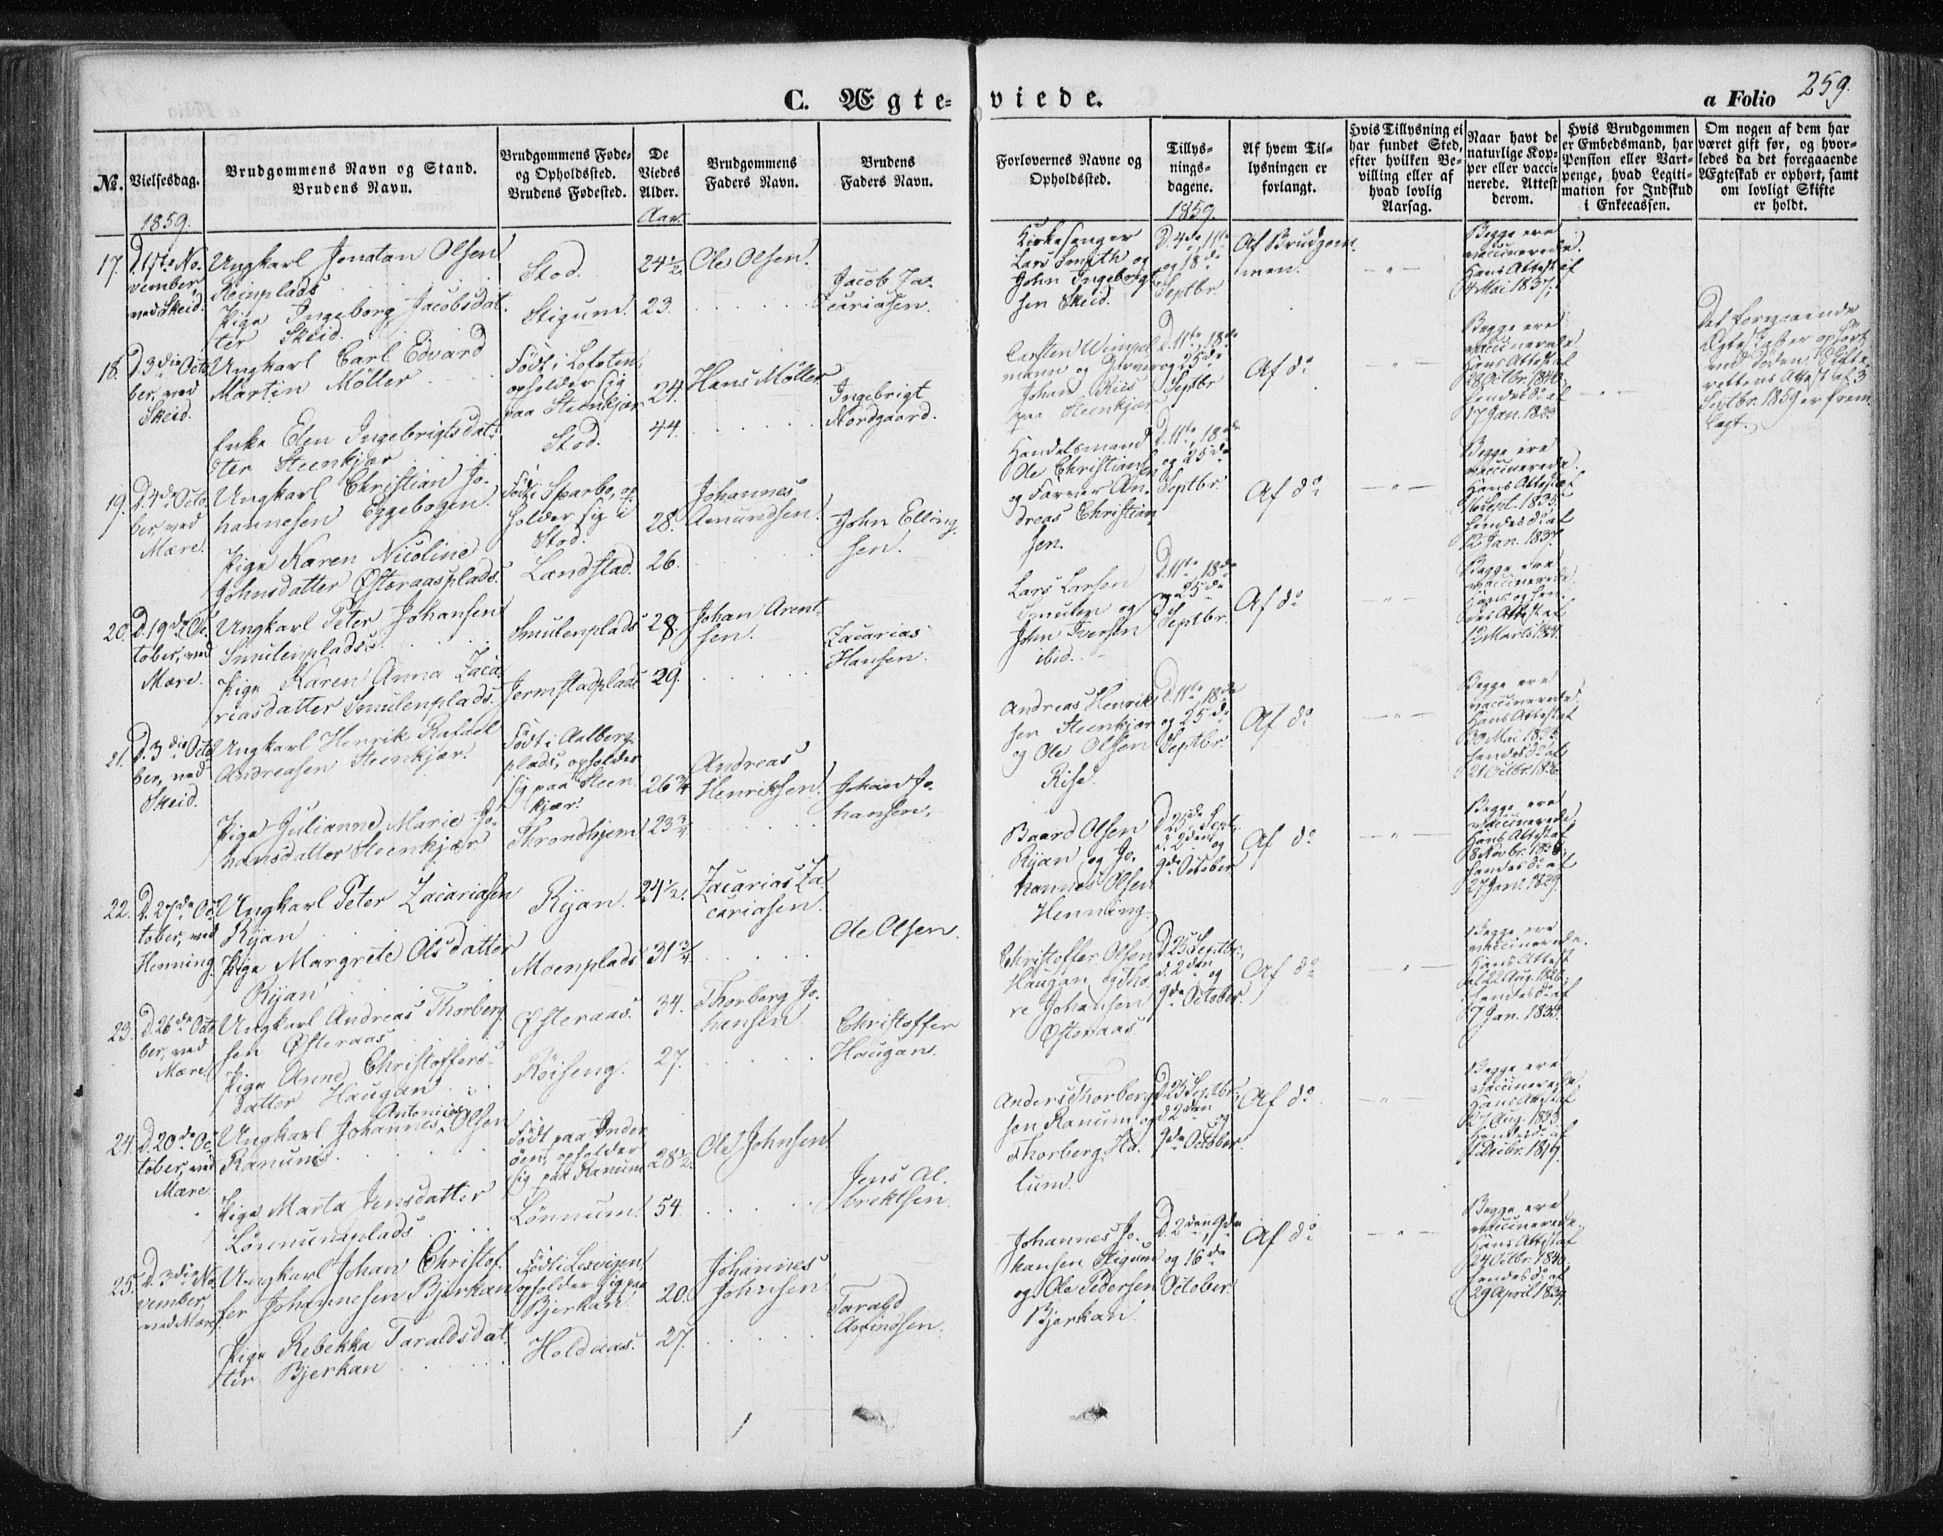 C. Ægte- viede. a Folio 259.
No. Vielsesdag. Brudgommens Navn og Stand. Brudens Navn. Brudgommens Føde- og Opholdssted. Brudens Fødested. De Viedes Alder. Brudgommens Faders Navn. Brudens Faders Navn.
Forlovernes Navne og Opholdssted. Tillys-nings-dagene. Af hvem Til-lysningen er forlangt. Hvis Tillysning ei har fundet Sted, efter hvilken Be-villing eller af hvad lovlig Aarsag. Naar havt de naturlige Kop-per eller vacci-nerede. Attest derom. Hvis Brudgommen er Embedsmand, har Pension eller Vart-penge, hvad Legiti-mation for Indskud i Enkecassen. Om nogen af dem har været gift før, og hvor-ledes da det foregaaende Ægteskab er ophørt, samt om lovligt Skifte er holdt.
1859. Aar. 1859.
17. D. 17de No-
vember,
ved Skeid.
Ungkarl Jonatan Olsen
Reinplads
Pige Ingeborg Jacobsdat-
ter Skeid.
Stod.
Stigum.
24½
23.
Ole Olsen.
Jacob Za-
cariasen.
Kirkesanger
Lars Smith og
John Ingebrigt-
sen Skeid.
D. 4de, 11te
og 18de
Septbr.
Af Brudgom-
men.
- " -
Begge ere
vaccinerede.
Hans Attest af
4 Mai 1837;
18. D. 3die Octo-
ber, ved
Skeid.
Ungkarl Carl Edvard
Martin Möller
Enke Elen Ingebrigtsdat-
ter Steenkjær
Født i Lofoten,
opholder sig
paa Steenkjær
Stod.
24.
44.
Hans Möller
Ingebrigt
Nordgaard.
Carsten Wimpel-
mann og Garver
Johan
paa Steenkjær
D. 11te, 18de
og 25de
Septbr
Af do
- " -
Begge ere
vaccinerede
Hans Attest af
28 Octbr. 1840,
hendes do af
17 Jan. 1823
- " -
Det foregaaende
Ægteskab er ophørt
ved Døden. Skifte-
rettens Attest af 3
Septbr. 1859 er frem-
lagt.
19. D. 4de Octo-
ber, ved
Mære.
Ungkarl Christian Jo-
hannesen Eggebogen.
Pige Karen Nicoline
Johnsdatter Østeraasplads.
Født i Sparbo, op-
holder sig i
Stod.
Landstad.
28.
26.
Johannes
Amundsen.
John Elling-
sen.
Handelsmand
Ole Christiansen
og Farver An-
dreas Christian-
sen.
D. 11te, 18de
og 25de
Septbr.
Af do
- " -
Begge ere
vaccinerede.
Hans Attest af
Sept. 1835
hendes do af
12 Jan. 1837.
20. D. 19de Oc-
tober, ved
Mære.
Ungkarl Peter Johansen
Smulenplads.
Pige Karen Anna Zaca-
riasdatter Smulenplads.
Smulenplads
Jermstadplads
28.
29.
Johan Arent-
sen.
Zacarias
Hansen.
Lars Larsen
Smulen og
John Iversen
ibid.
D. 11te, 18de
og 25de
Septbr.
Af do
- " -
Begge ere
vaccinerede.
Hans og hen-
des Attest af
12 Marts
21. D. 3die Octo-
ber, ved
Skeid.
Ungkarl Henrik Rafael
Andreasen Steenkjær.
Pige Julianne Marie Jo-
hansdatter Steenkjær
Født i Aalberg-
plads, opholder
sig paa Steen-
kjær.
Throndhjem
26¾
23¾
Andreas
Henriksen
Johan Jo-
hansen.
Andreas Henrik-
sen Steenkjær
og Ole Olsen
Rise.
D. 11te, 18de
og 25de
Septbr.
Af do
- " -
Begge ere
vaccinerede
Hans Attest af
30 Mai 1835
hendes do af
21 Octbr. 1836
22. D. 27de Oc-
tober, ved
Henning.
Ungkarl Peter Zacariasen
Ryan
Pige Margrete Olsdatter
Ryan
Ryan.
Moenplads
24½.
31¾
Zacarias Za-
cariasen.
Ole Olsen.
Baard Olsen
Ryan og Jo-
hannes Olsen
Henning.
D. 25de Sept.,
d. 2den og
9de October
Af do
- " -
Begge ere
vaccinerede,
Hans Attest af
8 Novbr. 1836,
hendes do af
27 Jan. 1829.
23. D. 26de Octo-
ber, ved
Mære.
Ungkarl Andreas Thorberg-
sen Østeraas
Pige Anne Christoffers-
datter Haugan
Østeraas.
Röiseng.
34.
27.
Thorberg Jo-
hansen
Christoffer
Haugan.
Christoffer Olsen
Haugan og Tho-
re Johansen
Østeraas
D. 25 Septbr.,
d. 2den og
9de October.
Af do
- " -
Begge ere
vaccinerede.
Hans Attest
af 22 Aug. 1826,
hendes do af
7 Jan. 1833.
24. D. 20de Oc-
tober, ved
Mære.
Ungkarl Johannes Antonius Olsen
Ranum
Pige Marta Jensdatter
Lønnumsplads
Født paa Inder-
øen, opholder
sig paa Ranum
Lönnum.
28½.
54.
Ole Johnsen
Jens Al-
brektsen
Anders Thorberg-
sen Ranum og
Thorberg
lum.
D. 25 Septbr.,
d. 2den og
9de October.
Af do
- " -
Begge ere
vaccinerede,
Hans Attest af
27 Aug. 1833.
hendes do af
Decbr. 1819.
25. D. 3die No-
vember,
ved Mære.
Ungkarl Johan Christof-
fer Johannesen Bjerkan
Pige Rebekka Taraldsdat-
ter Bjerkan
Født i
opholder sig paa
Bjerkan
Holdaas.
20.
27.
Johannes
Johnsen
Tarald
Arfindsen.
Johannes Jo-
hansen Stigum
og Ole Pedersen
Bjerkan
D. 2den, 9de
og 16de
October.
Af do
- " -
Begge ere
vaccinerede,
Hans Attest af
24 Octbr. 1840
hendes do af
29 April 1837.